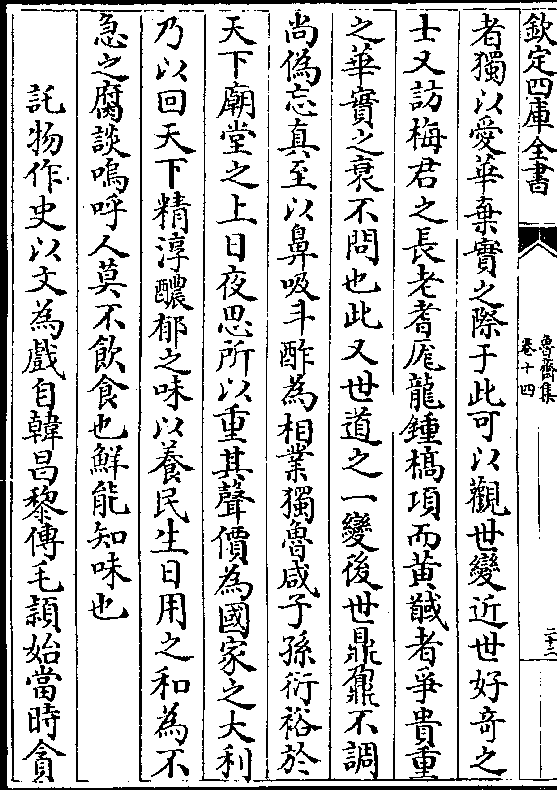 欽定四庫全書
魯齋集
卷十四
二十二
者獨以愛華棄實之際于此可以觀世變近世好奇之
士又訪梅君之長老耆厖龍鍾槁項而黄馘者爭貴重
之華實之衰不問也此又世道之一變後世鼎鼐不調
尚偽忘真至以鼻吸斗酢為相業獨魯咸子孫衍裕於
天下廟堂之上日夜思所以重其聲價為國家之大利
乃以回天下精淳醲郁之味以養民生日用之和為不
急之腐談嗚呼人莫不飲食也鮮能知味也
託物作史以文為戲自韓昌黎傳毛穎始當時貪